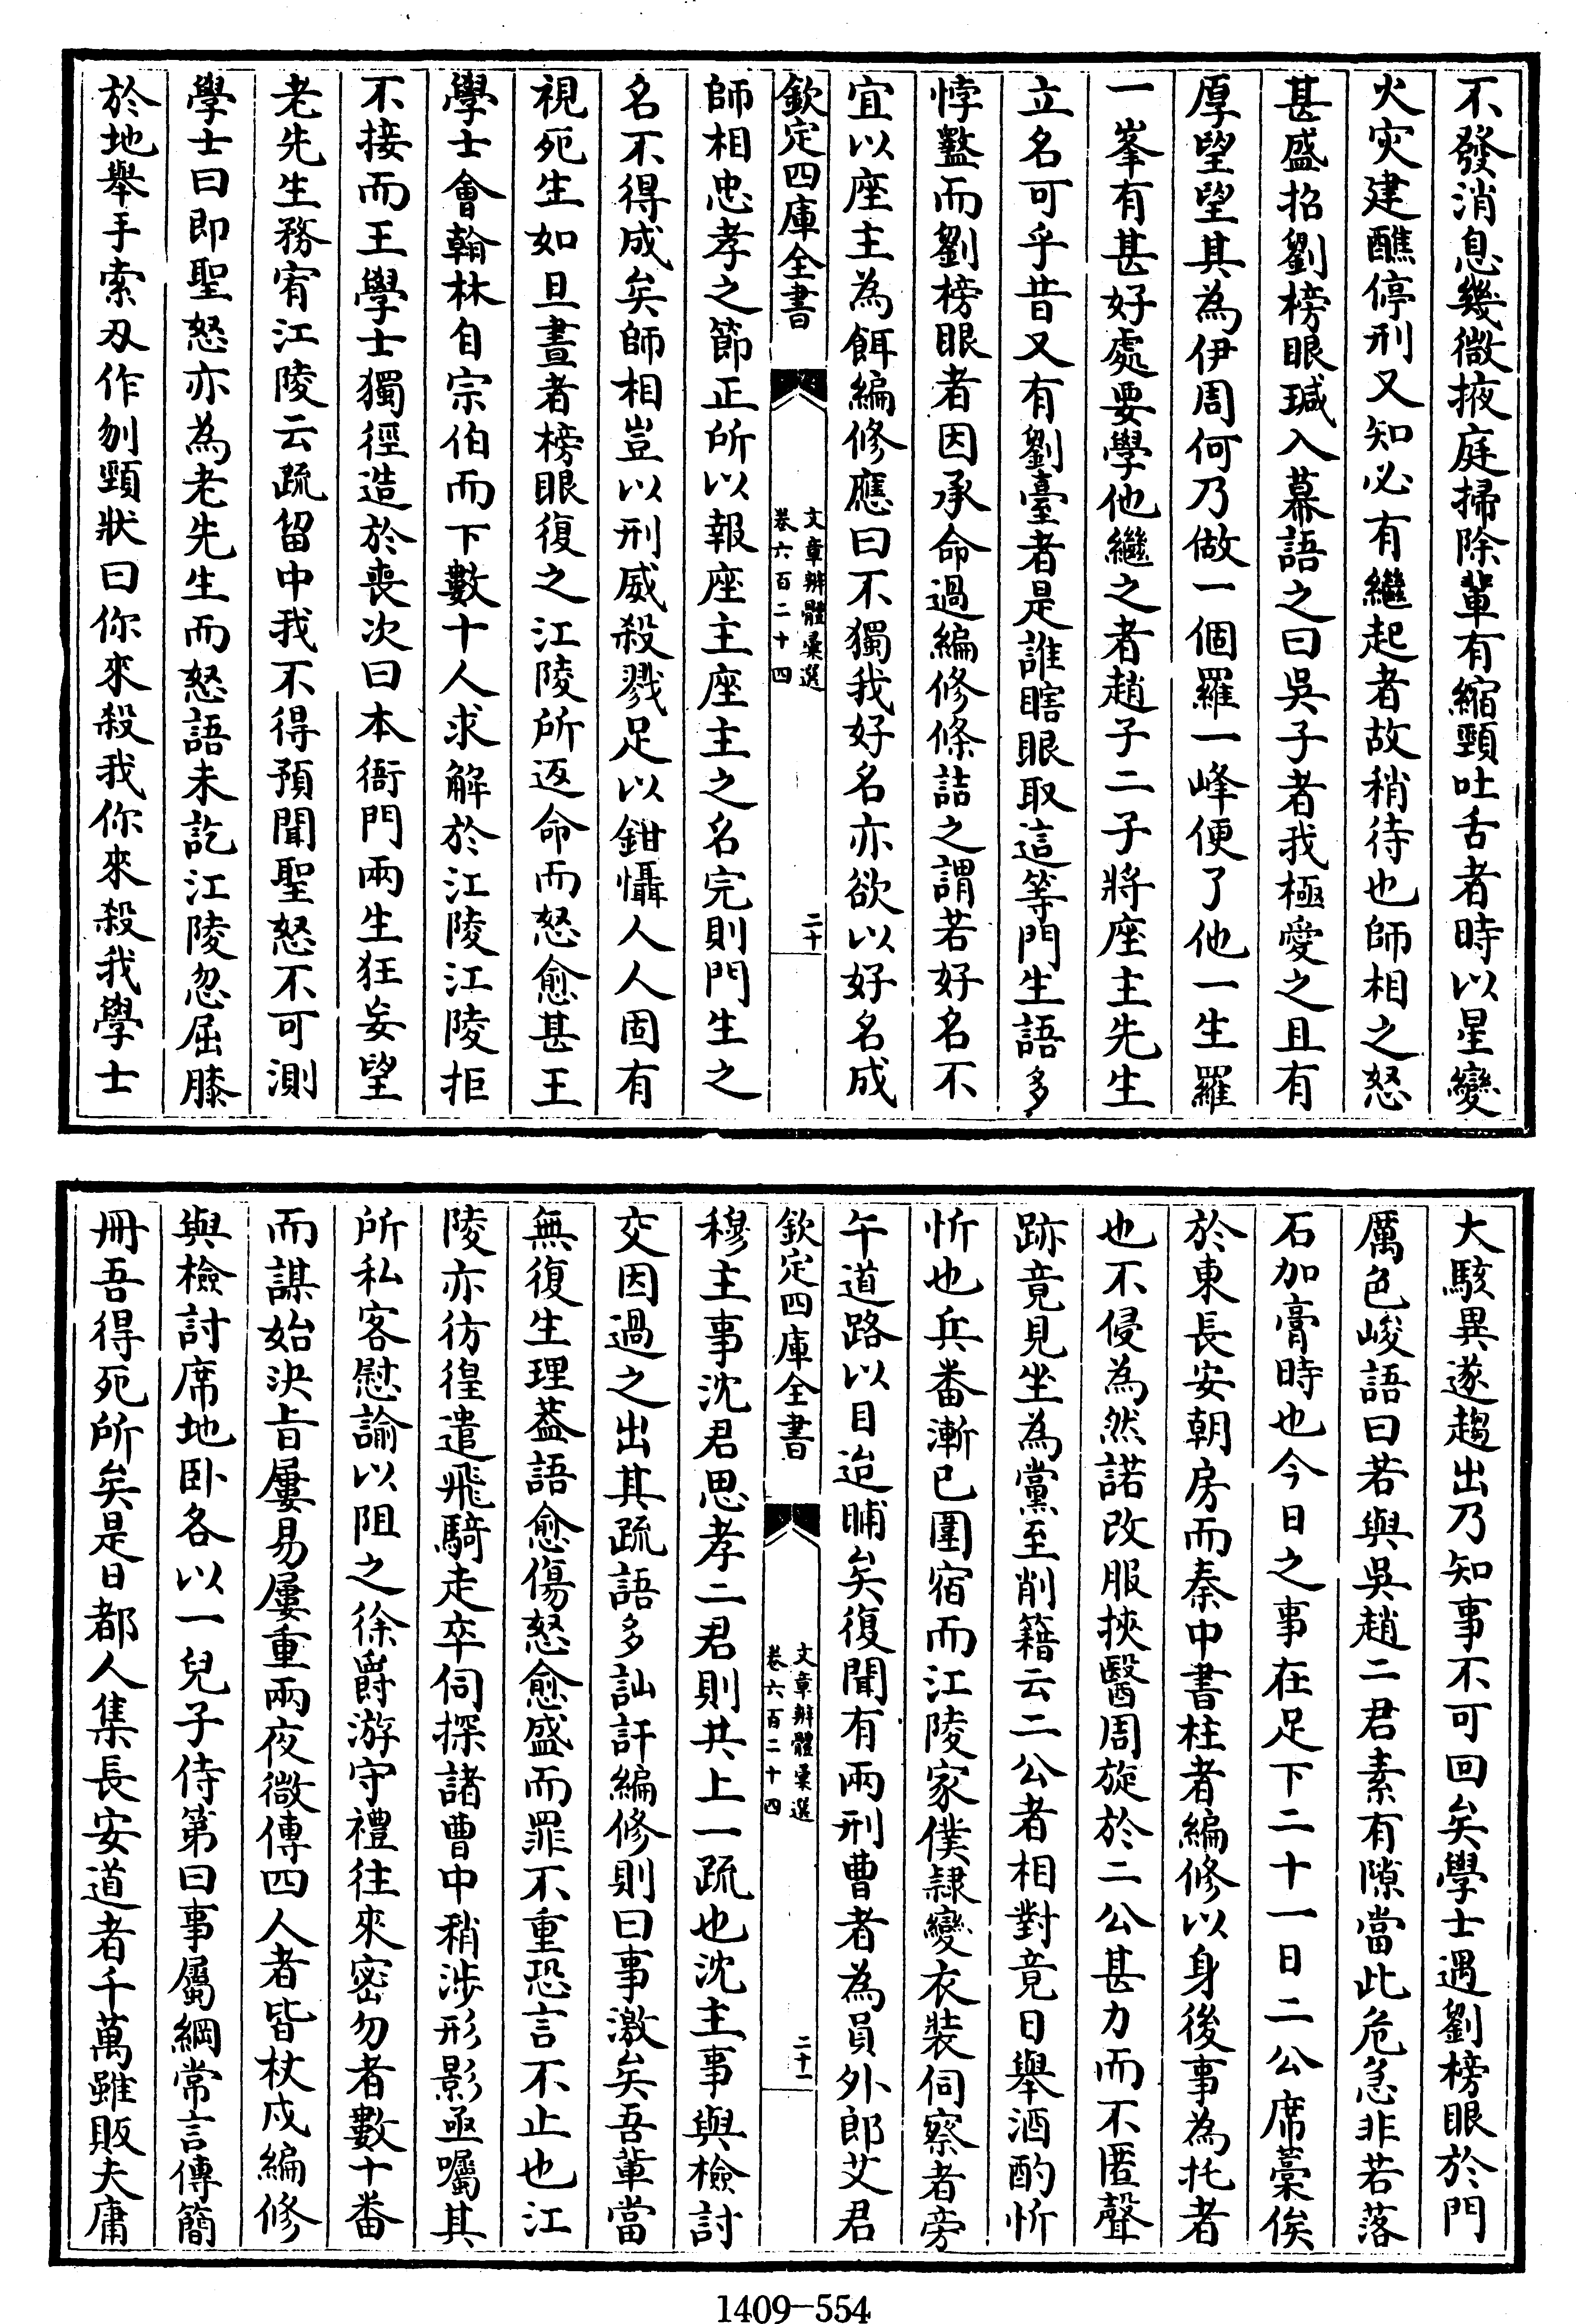 不發消息幾微掖庭掃除輩有縮頸吐舌者時以星變
火灾建醮停刑又知必有繼起者故稍待也師相之怒
甚盛招劉榜眼瑊入幕語之曰吳子者我極愛之且有
厚望望其為伊周何乃做一個羅一峰便了他一生羅
一峯有甚好處要學他繼之者趙子二子將座主先生
立名可乎昔又有劉臺者是誰瞎眼取這等門生語多
悖盭而劉榜眼者因承命過編修條詰之謂若好名不
宜以座主為餌編修應曰不獨我好名亦欲以好名成
欽定四庫全書
文章辨體彙選
卷六百二十四
二十
師相忠孝之節正所以報座主座主之名完則門生之
名不得成矣師相豈以刑威殺戮足以鉗懾人人固有
視死生如旦晝者榜眼復之江陵所返命而怒愈甚王
學士會翰林自宗伯而下數十人求解於江陵江陵拒
不接而王學士獨徑造於喪次曰本衙門兩生狂妄望
老先生務宥江陵云疏留中我不得預聞聖怒不可測
學士曰即聖怒亦為老先生而怒語未訖江陵忽屈膝
於地舉手索刄作刎頸狀曰你來殺我你來殺我學士
大駭異遂趨出乃知事不可回矣學士遇劉榜眼於門
厲色峻語曰若與吳趙二君素有隙當此危急非若落
石加膏時也今日之事在足下二十一日二公席藁俟
於東長安朝房而秦中書柱者編修以身後事為托者
也不侵為然諾改服挾醫周旋於二公甚力而不匿聲
跡竟見坐為黨至削籍云二公者相對竟日舉酒酌忻
忻也兵番漸已圍宿而江陵家僕隸變衣裝伺察者旁
午道路以目迨晡矣復聞有兩刑曹者為員外郎艾君
欽定四庫全書
文章辨體彙選
卷六百二十四
二十一
穆主事沈君思孝二君則共上一疏也沈主事與檢討
交因過之出其疏語多訕訐編修則曰事激矣吾輩當
無復生理葢語愈傷怒愈盛而罪不重恐言不止也江
陵亦彷徨遣飛騎走卒伺探諸曹中稍涉形影亟囑其
所私客慰諭以阻之徐爵游守禮往來密勿者數十番
而謀始決旨屢易屢重兩夜微傳四人者皆杖戍編修
與檢討席地卧各以一兒子侍第曰事屬綱常言傳簡
冊吾得死所矣是日都人集長安道者千萬雖販夫庸
1409—554